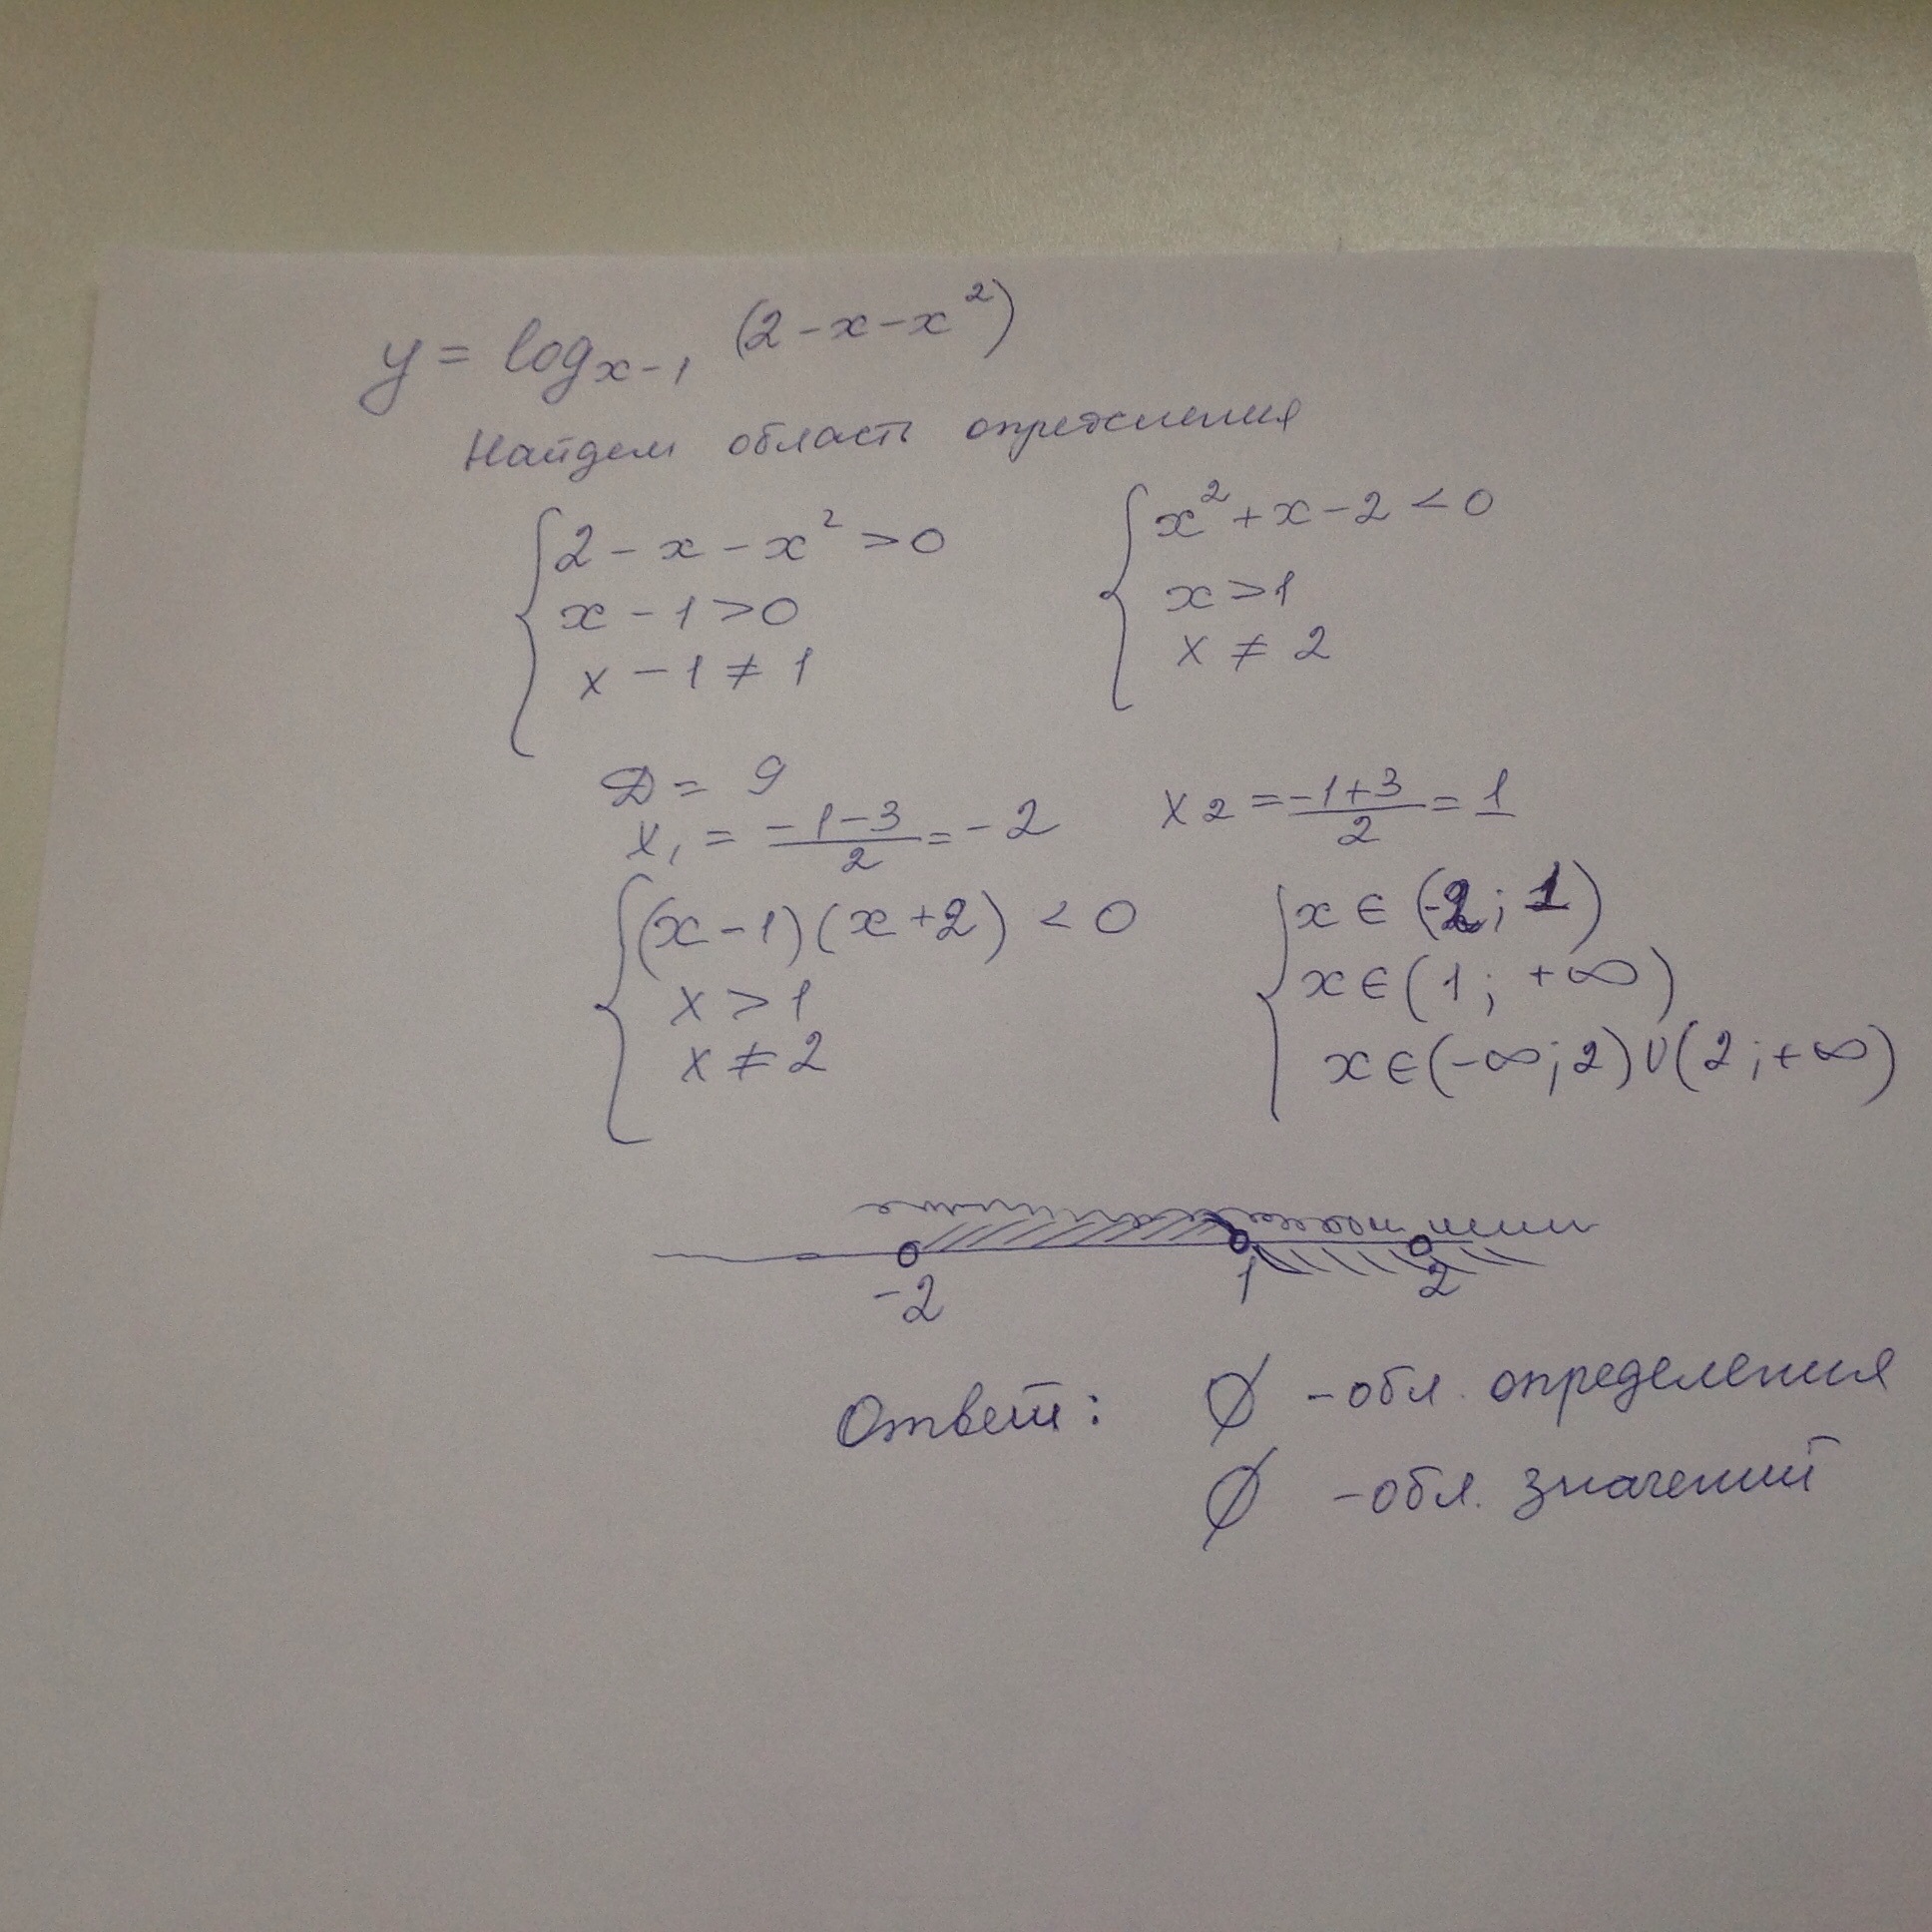 y = log_{x-1} (2-x-x²)
Найдем область определения
{ 2 - x - x² > 0
x - 1 > 0
x - 1 ≠ 1
{ x² + x - 2 < 0
x > 1
x ≠ 2
D = 9
x₁ = (-1-3)/2 = -2 x₂ = (-1+3)/2 = 1
{ (x-1)(x+2) < 0
x > 1
x ≠ 2
{ x ∈ (-2; 1)
x ∈ (1; +∞)
x ∈ (-∞; 2) ∪ (2; +∞)
-2 1 2
Ответ: ∅ - обл. определения
∅ - обл. значений